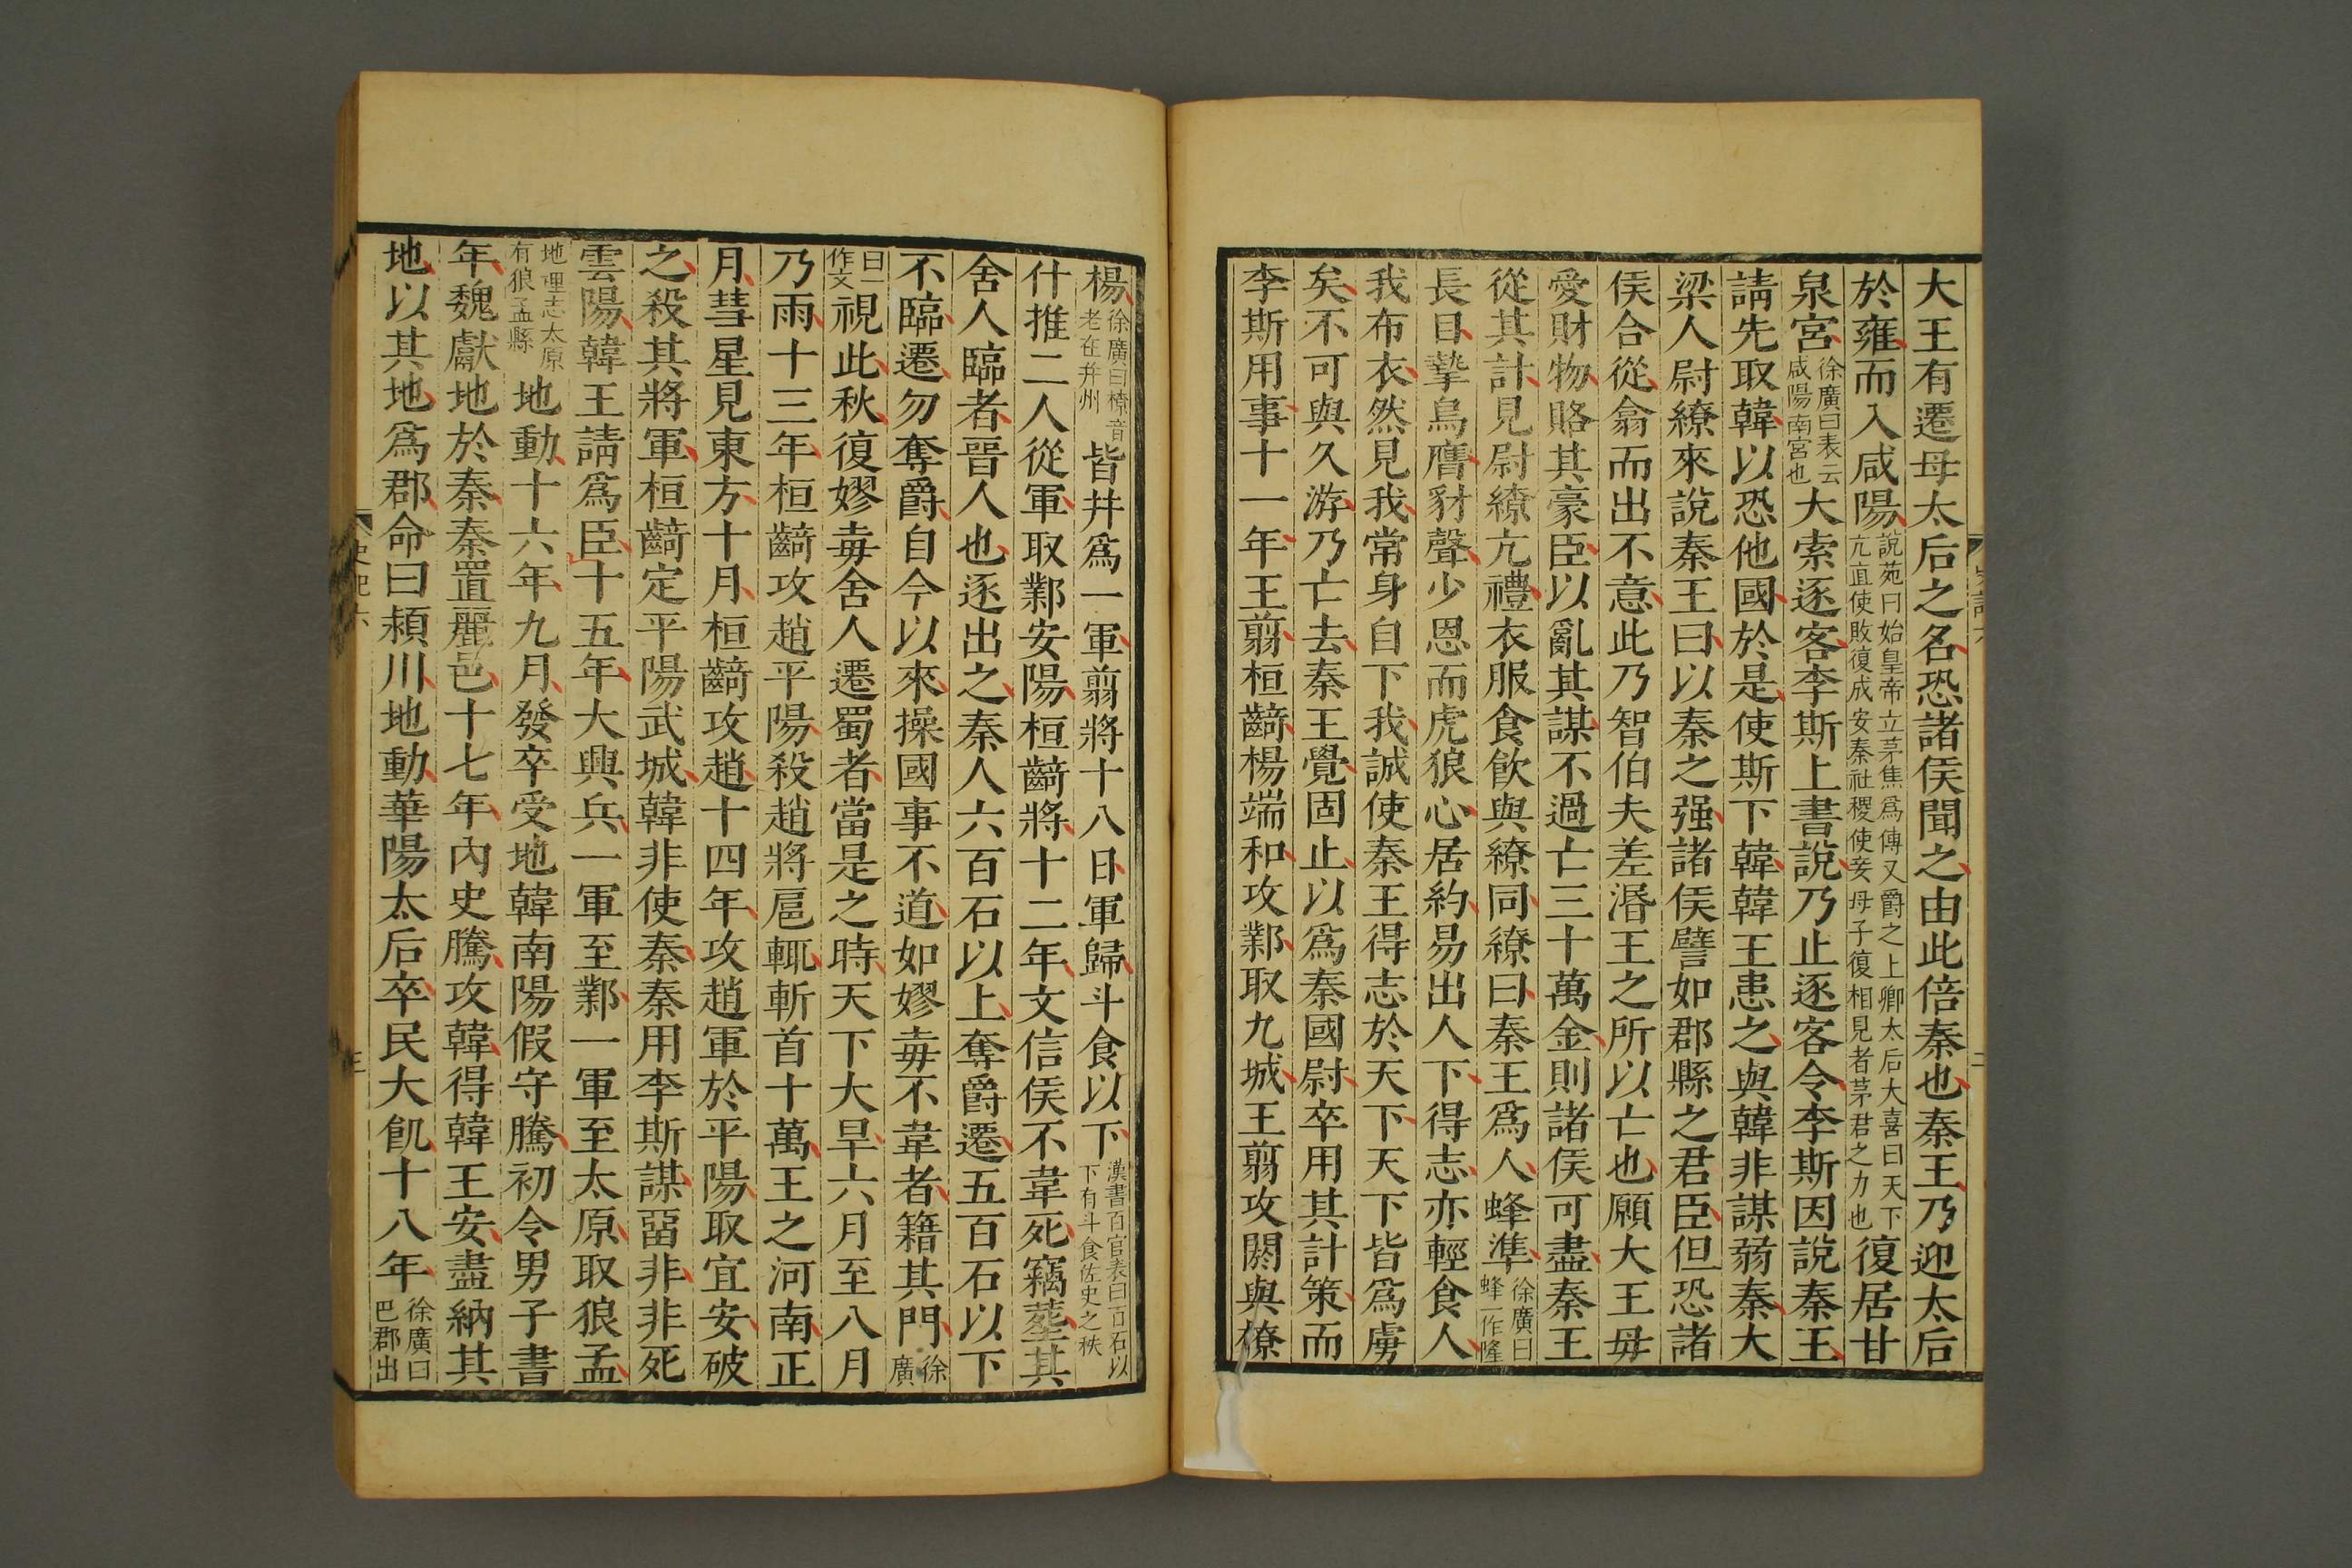 大王有遷母太后之名恐諸侯聞之由此倍秦也秦王乃迎太后
於雍而入咸陽說苑曰始皇帝立茅焦爲傅又爵之上卿太后大喜曰天下亢直使敗復成安秦社稷使妾母子復相見者茅君之力也復居甘
泉宮徐廣曰表云咸陽南宮也大索逐客李斯上書說乃止逐客令李斯因說秦王
請先取韓以恐他國於是使斯下韓韓王患之與韓非謀弱秦大
梁人尉繚來說秦王曰以秦之强諸侯譬如郡縣之君臣但恐諸
侯合從翕而出不意此乃智伯夫差湣王之所以亡也願大王毋
愛財物賂其豪臣以亂其謀不過亡三十萬金則諸侯可盡秦王
從其計見尉繚亢禮衣服食飲與繚同繚曰秦王爲人蜂準徐廣曰蜂一作隆
長目摯鳥膺豺聲少恩而虎狼心居約易出人下得志亦輕食人
我布衣然見我常身自下我誠使秦王得志於天下天下皆爲虜
矣不可與久游乃亡去秦王覺固止以爲秦國尉卒用其計策而
李斯用事十一年王翦桓齮楊端和攻鄴取九城王翦攻閼與橑
史記六
二
楊徐廣曰橑音老在并州皆并爲一軍翦將十八日軍歸斗食以下漢書百官表曰百石以下有斗食佐史之秩
什推二人從軍取鄴安陽桓齮將十二年文信侯不韋死竊葬其
舍人臨者晉人也逐出之秦人六百石以上奪爵遷五百石以下
不臨遷勿奪爵自今以來操國事不道如嫪毐不韋者籍其門徐廣
曰一作文視此秋復嫪毐舍人遷蜀者當是之時天下大旱六月至八月
乃雨十三年桓齮攻趙平陽殺趙將扈輒斬首十萬王之河南正
月彗星見東方十月桓齮攻趙十四年攻趙軍於平陽取宜安破
之殺其將軍桓齮定平陽武城韓非使秦秦用李斯謀留非非死
雲陽韓王請爲臣十五年大興兵一軍至鄴一軍至太原取狼孟
地理志太原有狼孟縣地動十六年九月發卒受地韓南陽假守騰初令男子書
年魏獻地於秦秦置麗邑十七年內史騰攻韓得韓王安盡納其
地以其地爲郡命曰潁川地動華陽太后卒民大飢十八年徐廣曰巴郡出
史記六
三